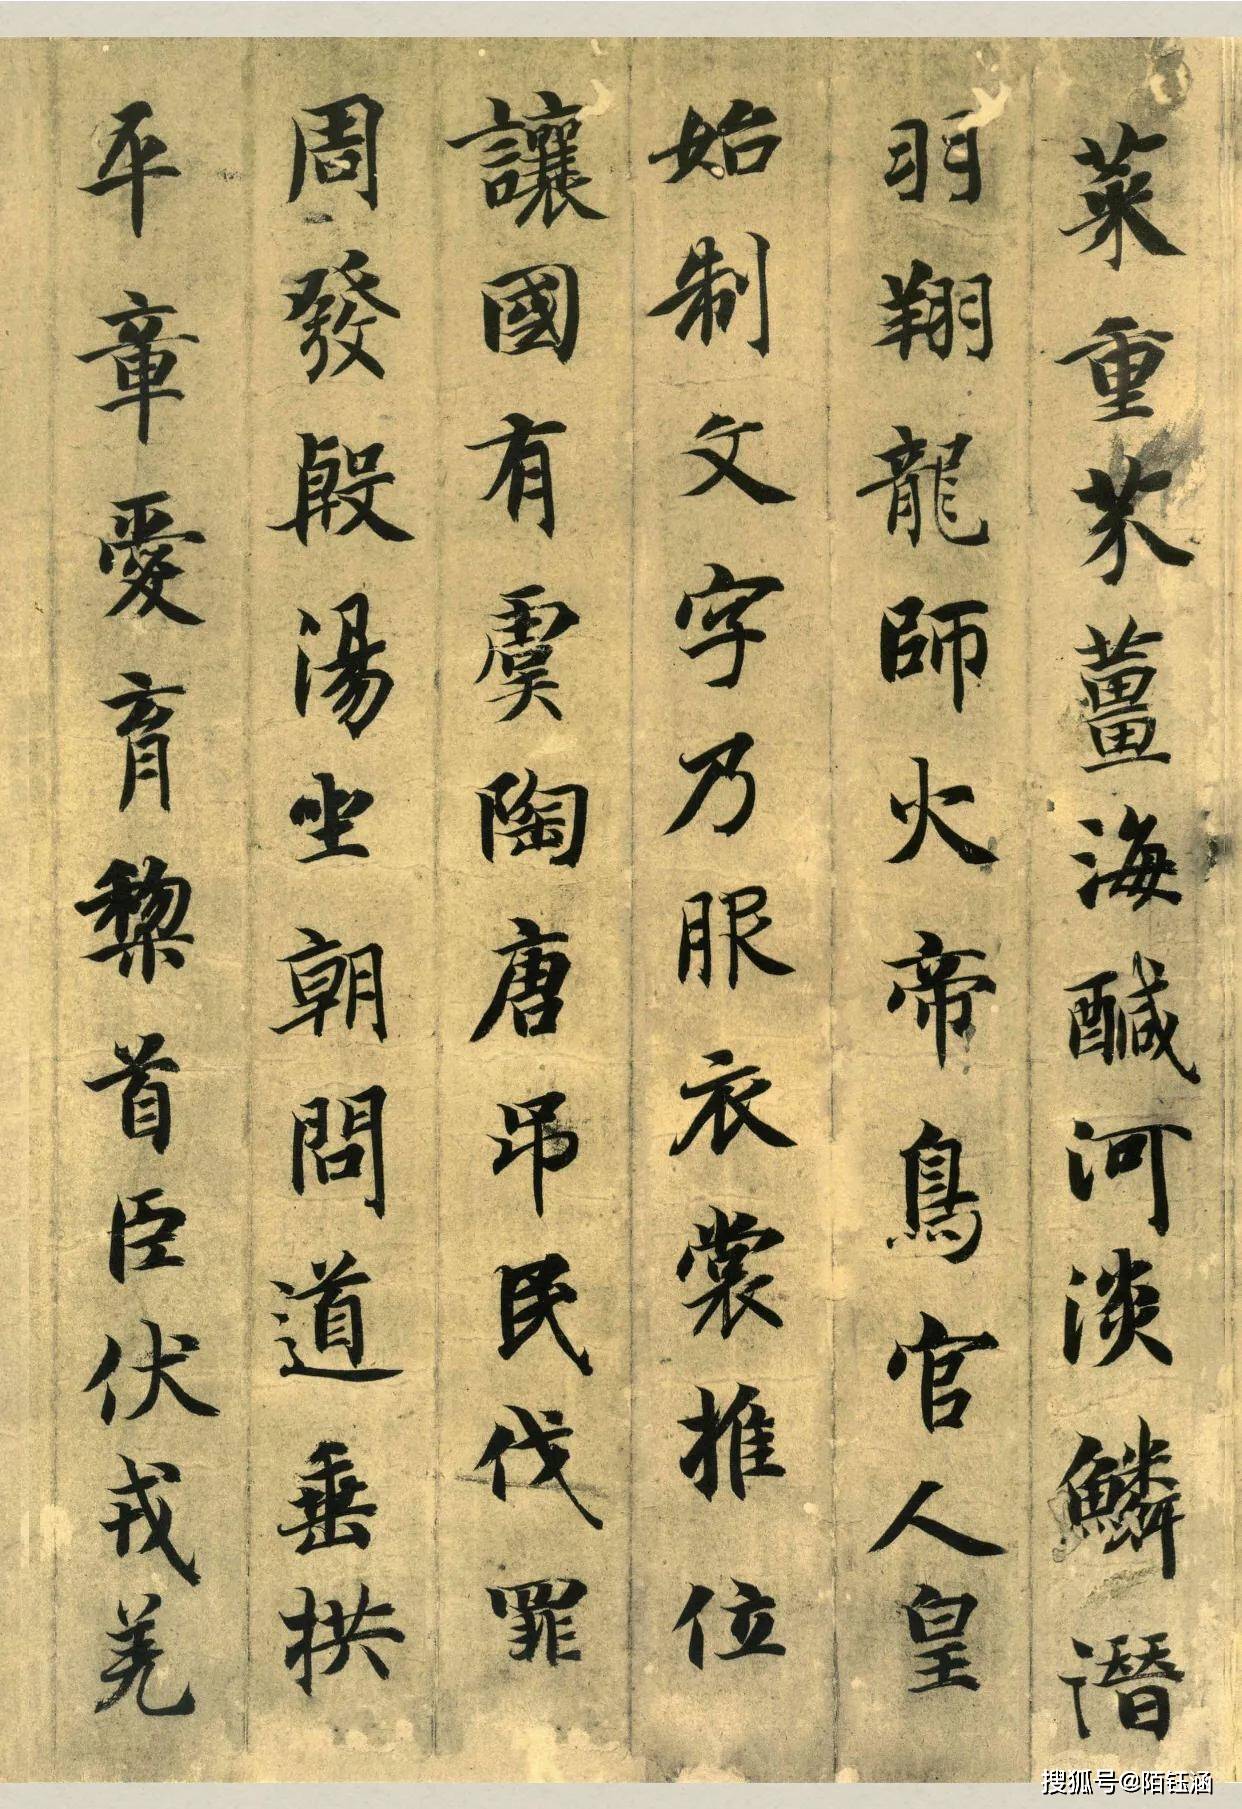 菜重芥薑海醎河淡鱗潛
羽翔龍師火帝鳥官人皇
始制文字乃服衣裳推位
讓國有虞陶唐吊民伐罪
周發殷湯坐朝問道垂拱
平章愛育黎首臣伏戎羌
搜狐号@陌钰涵